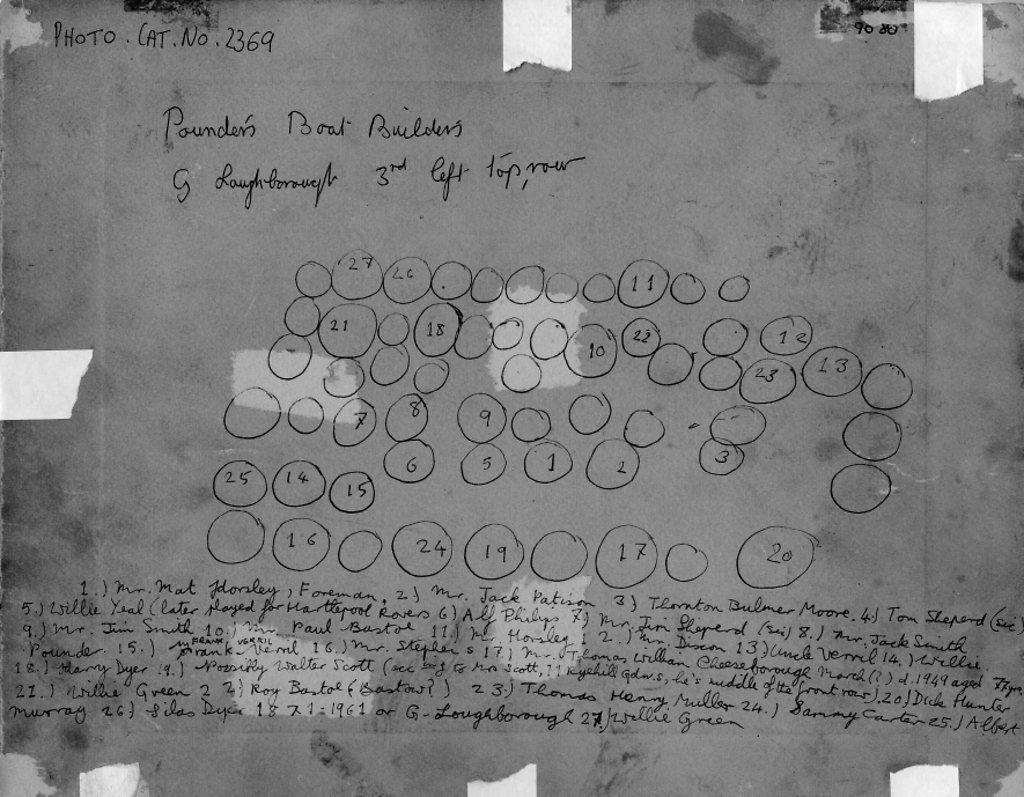 PHOTO. CAT. NO. 2369
90 80
Pounder's Boat Builders
G Loughborough 3rd left top row
27 26 11
21 18 10 22 12
23 13
7 8 9
6 5 1 2 3
25 14 15
16 24 19 17 20
1.) Mr. Mat Horsley, Foreman, 2.) Mr. Jack Patison 3) Thornton Bulmer Moore. 4.) Tom Sheperd (sic)
5.) Willie Yeal (later played for Hartlepool Rovers 6) Alf Philips 7) Mr. Jim Sheperd (sic) 8.) Mr. Jack Smith
9.) Mr. Jim Smith 10.) Mr. Paul Bastoe 11) Mr. Horsley 12.) Mr Dixon 13) Uncle Verril 14.) Willie
Pounder. 15.) Frank Verril 16.) Mr. Stephens 17.) Mr. Thomas William Cheeseborough March (?) d. 1949 aged 77 yrs.
MR FRANK VERRIL
18.) Harry Dyer 19.) Possibly Walter Scott (acc to Mrs Scott, 11 Ryehill Gdns, he's middle of the front row). 20) Dick Hunter
21.) Willie Green 22) Roy Bastoe (Bastow?) 23.) Thomas Henry Muller 24.) Sammy Carter 25.) Albert
Murray 26) Silas Dyer 1871-1961 or G. Loughborough 27) Willie Green